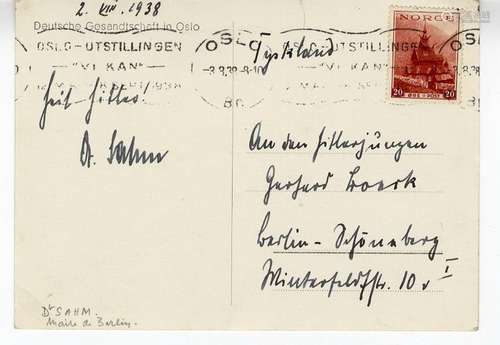 2. VIII. 1938
Deutsche Gesandtschaft in Oslo
OSLO-UTSTILLINGEN
"VI KAN"
OSLO
-3.8.38-8-10
Br
Tyskland
UTSTILLINGEN
KAN"
NORGE
20 20
Heil Hitler!
Dr. Sahm
An den Hitlerjungen
Gerhard Boeck
Berlin-Schöneberg
Winterfeldtstr. 10 v I
Dr SAHM.
Maire de Berlin.